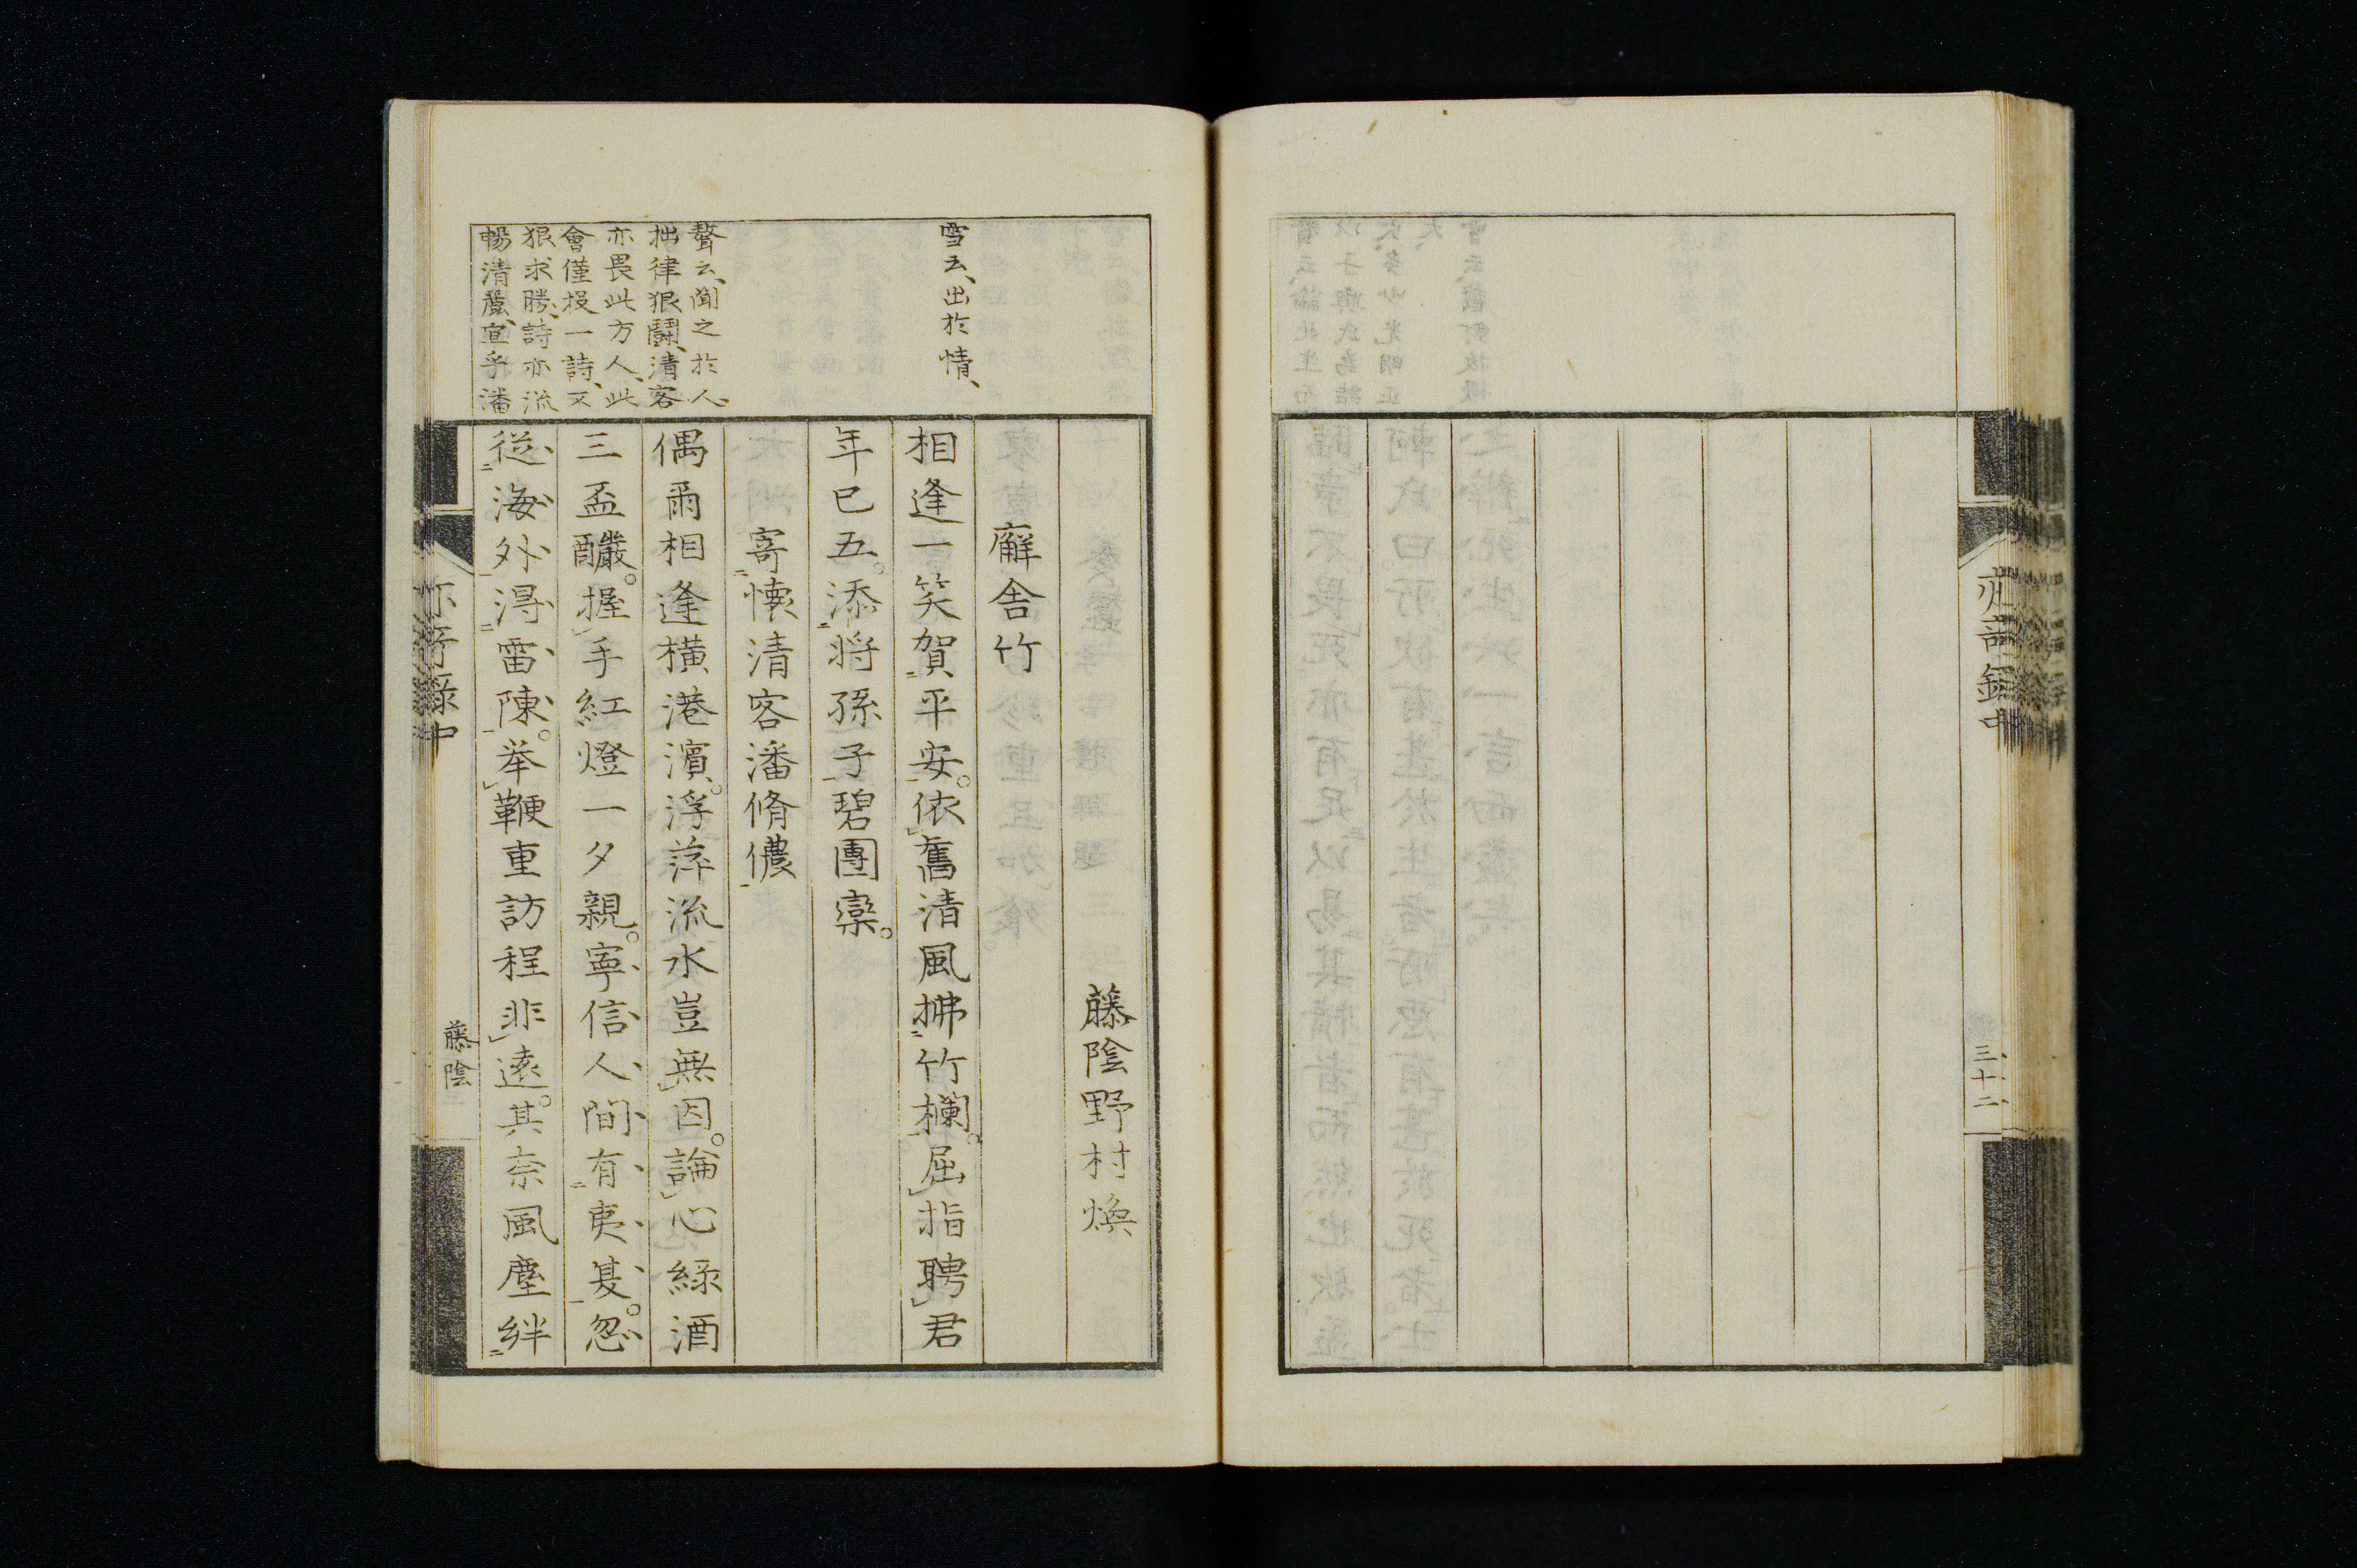 三十二
藤陰野村煥
廨舎竹
雪云、出於情、
相逢一笑賀平安。依舊清風拂竹欄。屈指聘君
年已五。添將孫子碧團欒。
寄懐清客潘脩儂
聱云、聞之於人、
拙律狠鬪、清客
亦畏此方人、此
會僅投一詩、不
狠求勝、詩亦流
暢清麗、宜乎潘
偶爾相逢横港濱。浮萍流水豈無因。論心緑酒
三盃釅。握手紅燈一夕親。寧信人間有夷夏。忽
従海外得雷陳。挙鞭重訪程非遠。其奈風塵絆
藤陰